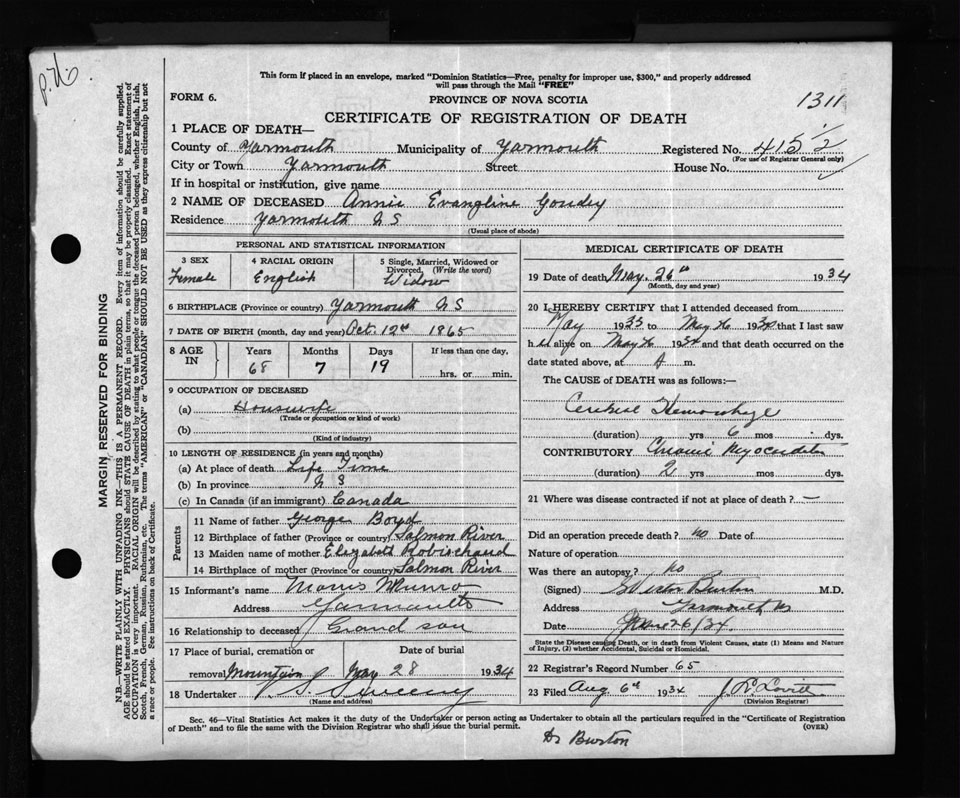 This form if placed in an envelope, marked "Dominion Statistics—Free, penalty for improper use, $300," and properly addressed
will pass through the Mail "FREE"
FORM 6.
PROVINCE OF NOVA SCOTIA
1311
CERTIFICATE OF REGISTRATION OF DEATH
1 PLACE OF DEATH—
County of Yarmouth Municipality of Yarmouth Registered No. 415 1/2
(For use of Registrar General only)
City or Town Yarmouth Street House No.
If in hospital or institution, give name
2 NAME OF DECEASED Annie Evangline Goudey
Residence Yarmouth N S
(Usual place of abode)
PERSONAL AND STATISTICAL INFORMATION
3 SEX
Female
4 RACIAL ORIGIN
English
5 Single, Married, Widowed or
Divorced, (Write the word)
Widow
6 BIRTHPLACE (Province or country) Yarmouth N S
7 DATE OF BIRTH (month, day and year) Oct. 12th 1865
8 AGE IN
Years Months Days If less than one day,
68 7 19 hrs. or min.
9 OCCUPATION OF DECEASED
(a) Housewife
(Trade or occupation or kind of work)
(b)
(Kind of industry)
10 LENGTH OF RESIDENCE (in years and months)
(a) At place of death Life Time
(b) In province N S
(c) In Canada (if an immigrant) Canada
Parents
11 Name of father George Boyd
12 Birthplace of father (Province or country) Salmon River
13 Maiden name of mother Elizabeth Robischaud
14 Birthplace of mother (Province or country) Salmon River
15 Informant's name Morris Munro
Address Yarmouth
16 Relationship to deceased Grand son
17 Place of burial, cremation or Date of burial
removal Mountain May 28 1934
18 Undertaker V. S. Sweeny
(Name and address)
MEDICAL CERTIFICATE OF DEATH
19 Date of death May. 26th 1934
(Month, day and year)
20 I HEREBY CERTIFY that I attended deceased from
May 1933 to May 26 1934 that I last saw
h alive on May 26 1934 and that death occurred on the
date stated above, at A m.
The CAUSE of DEATH was as follows:—
Cerebral Hemorrhage
(duration) yrs 6 mos dys.
CONTRIBUTORY Chronic Myocarditis
(duration) 2 yrs mos. dys.
21 Where was disease contracted if not at place of death? —
Did an operation precede death? no Date of
Nature of operation
Was there an autopsy? no
(Signed) G Victor Burton M.D.
Address Yarmouth NS
Date June 26/34
State the Disease causing Death, or in death from Violent Causes, state (1) Means and Nature
of Injury, (2) whether Accidental, Suicidal or Homicidal.
22 Registrar's Record Number 65
23 Filed Aug 6th 1934
(Division Registrar)
Sec. 46—Vital Statistics Act makes it the duty of the Undertaker or person acting as Undertaker to obtain all the particulars required in the "Certificate of Registration
of Death" and to file the same with the Division Registrar who shall issue the burial permit. (OVER)
Dr Burton
MARGIN RESERVED FOR BINDING
N.B.—WRITE PLAINLY WITH UNFADING INK—THIS IS A PERMANENT RECORD. Every item of information should be carefully supplied.
AGE should be stated EXACTLY. PHYSICIANS should STATE CAUSE OF DEATH in plain terms, so that it may be properly classified. Exact statement of
OCCUPATION is very important. RACIAL ORIGIN will be described by stating to what people or tongue the deceased person belonged, whether English, Irish,
Scotch, French, German, Russian, Ruthenian, etc. The terms "AMERICAN" or "CANADIAN" SHOULD NOT BE USED as they express citizenship but not
a race or people. See instructions on back of Certificate.